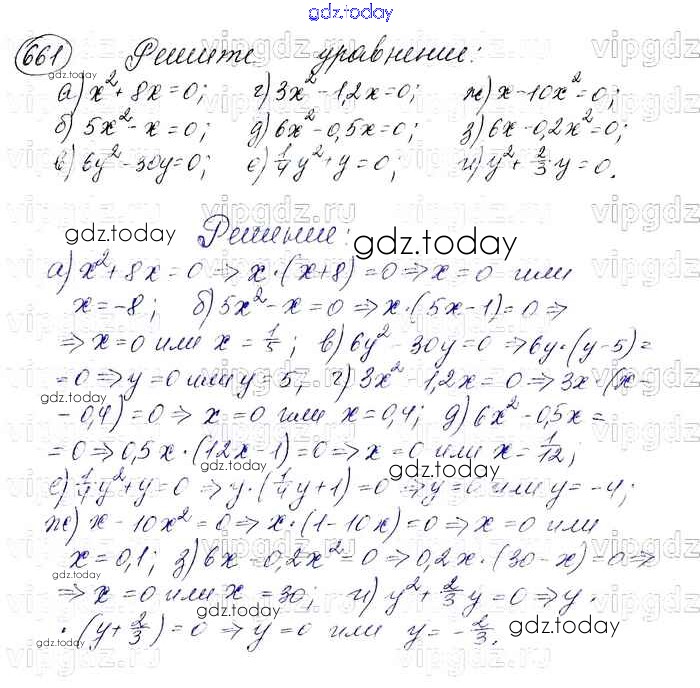 gdz.today
661 Решите уравнение:
а) x²+8x=0; г) 3x²-1,2x=0; ж) x-10x²=0;
б) 5x²-x=0; д) 6x²-0,5x=0; з) 6x-0,2x²=0;
в) 6y²-30y=0; е) 1/4y²+y=0; и) y²+2/3y=0.
gdz.today
Решение:
gdz.today
gdz.today
а) x²+8x=0 ⇒ x·(x+8)=0 ⇒ x=0 или
x=-8; б) 5x²-x=0 ⇒ x·(5x-1)=0 ⇒
⇒ x=0 или x=1/5; в) 6y²-30y=0 ⇒ 6y·(y-5)=
=0 ⇒ y=0 или y=5; г) 3x²-1,2x=0 ⇒ 3x·(x-
-0,4)=0 ⇒ x=0 или x=0,4; д) 6x²-0,5x=
gdz.today
=0 ⇒ 0,5x·(12x-1)=0 ⇒ x=0 или x=1/12;
gdz.today
gdz.today
е) 1/4y²+y=0 ⇒ y·(1/4y+1)=0 ⇒ y=0 или y=-4;
ж) x-10x²=0 ⇒ x·(1-10x)=0 ⇒ x=0 или
x=0,1; з) 6x-0,2x²=0 ⇒ 0,2x·(30-x)=0 ⇒
gdz.today
⇒ x=0 или x=30; и) y²+2/3y=0 ⇒ y·
gdz.today
gdz.today
·(y+2/3)=0 ⇒ y=0 или y=-2/3.
gdz.today